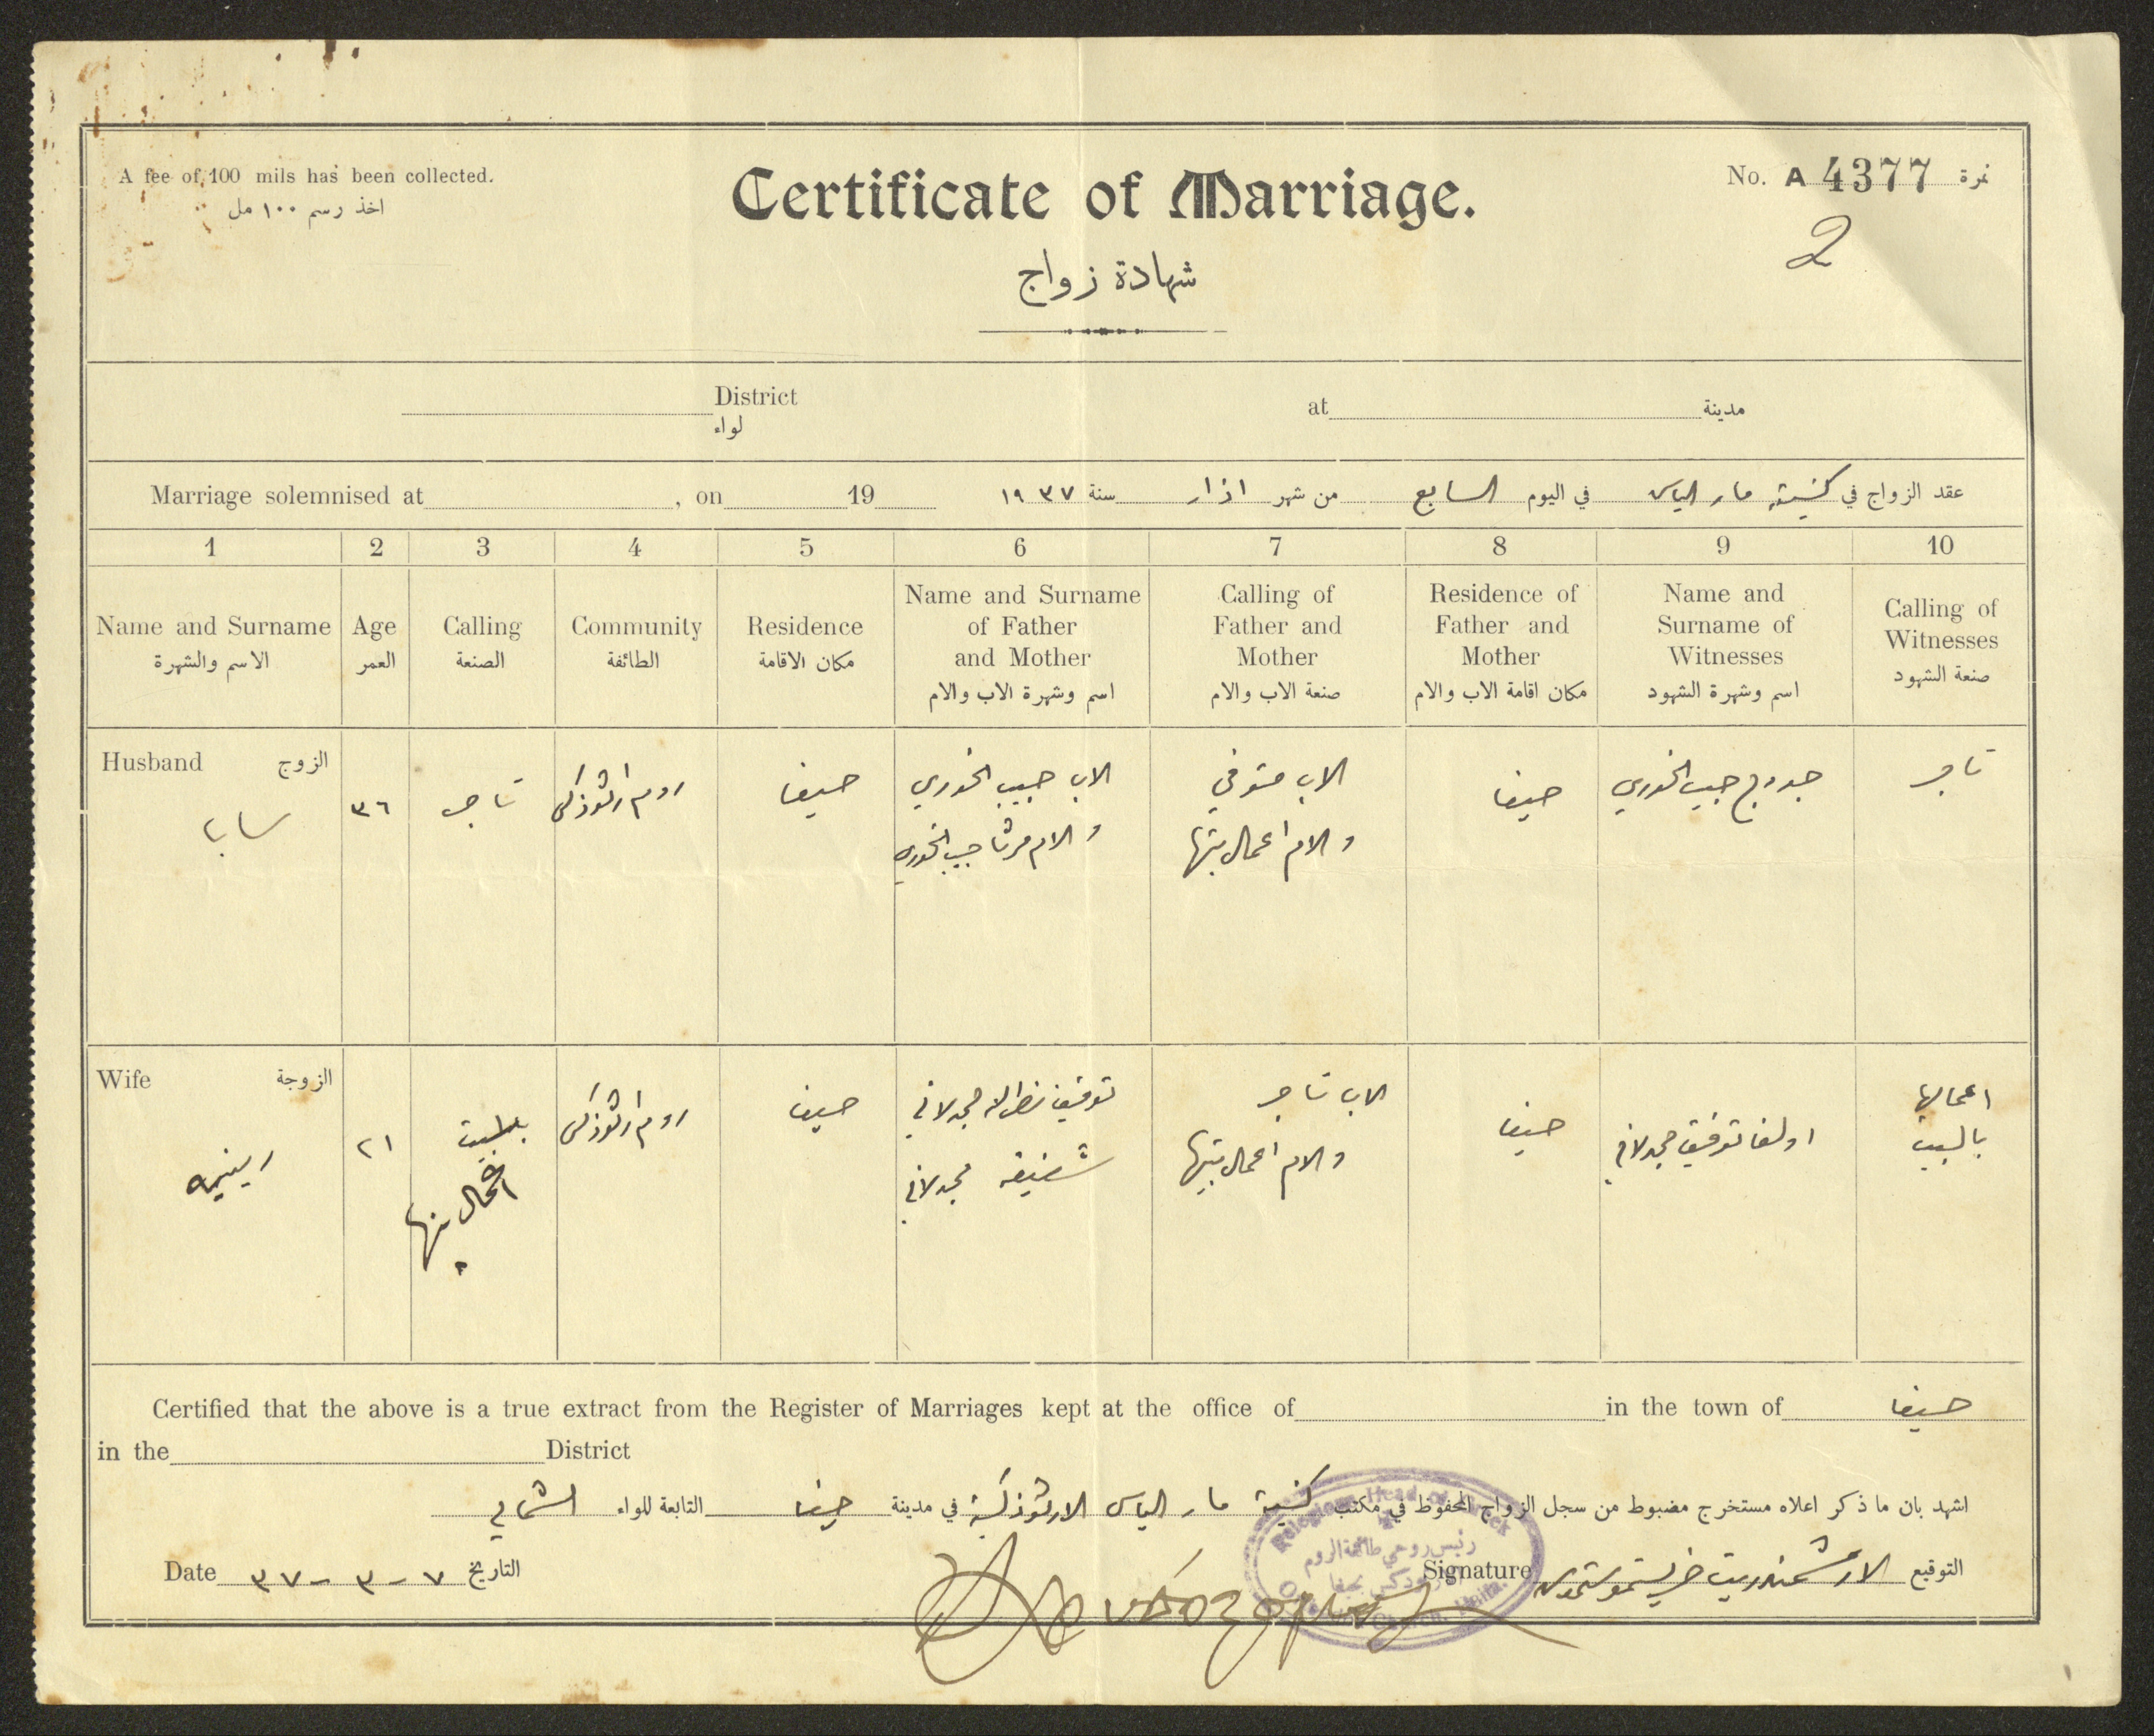 A fee of 100 mils has been collected.
اخذ رسم ١٠٠ مل
Certificate of Marriage.
شهادة زواج
No. A 4377 نمرة
2
District
لواء
at مدينة
Marriage solemnised at , on 19
عقد الزواج في كنيسة مار الياس في اليوم السابع من شهر اذار سنة ١٩٣٧
1 2 3 4 5 6 7 8 9 10
Name and Surname
الاسم والشهرة
Age
العمر
Calling
الصنعة
Community
الطائفة
Residence
مكان الاقامة
Name and Surname
of Father
and Mother
اسم وشهرة الاب والام
Calling of
Father and
Mother
صنعة الاب والام
Residence of
Father and
Mother
مكان اقامة الاب والام
Name and
Surname of
Witnesses
اسم وشهرة الشهود
Calling of
Witnesses
صنعة الشهود
Husband الزوج
سابا
٣٦
تاجر
روم ارثوذكس
حيفا
الاب حبيب الخوري
والام مرتا حبيب الخوري
الاب متوفي
والام اعمال بيتها
حيفا
جورج حبيب الخوري
تاجر
Wife الزوجة
رينيه
٢١
اعمال بيتها
روم ارثوذكس
حيفا
توفيق نصرالله مجدلاني
شفيقه مجدلاني
الاب تاجر
والام اعمال بيتها
حيفا
اولغا توفيق مجدلاني
اعمالها
بالبيت
Certified that the above is a true extract from the Register of Marriages kept at the office of in the town of حيفا
in the District
اشهد بان ما ذكر اعلاه مستخرج مضبوط من سجل الزواج المحفوظ في مكتب كنيسة مار الياس الارثوذكسية في مدينة حيفا التابعة للواء الشمالي
Date ٧-٣-٣٧ التاريخ
Signature الارشمندريت خريستوموستموس التوقيع
Religious Head of Greek
رئيس روحي طائفة الروم
الارثوذكس بحيفا
Haifa.